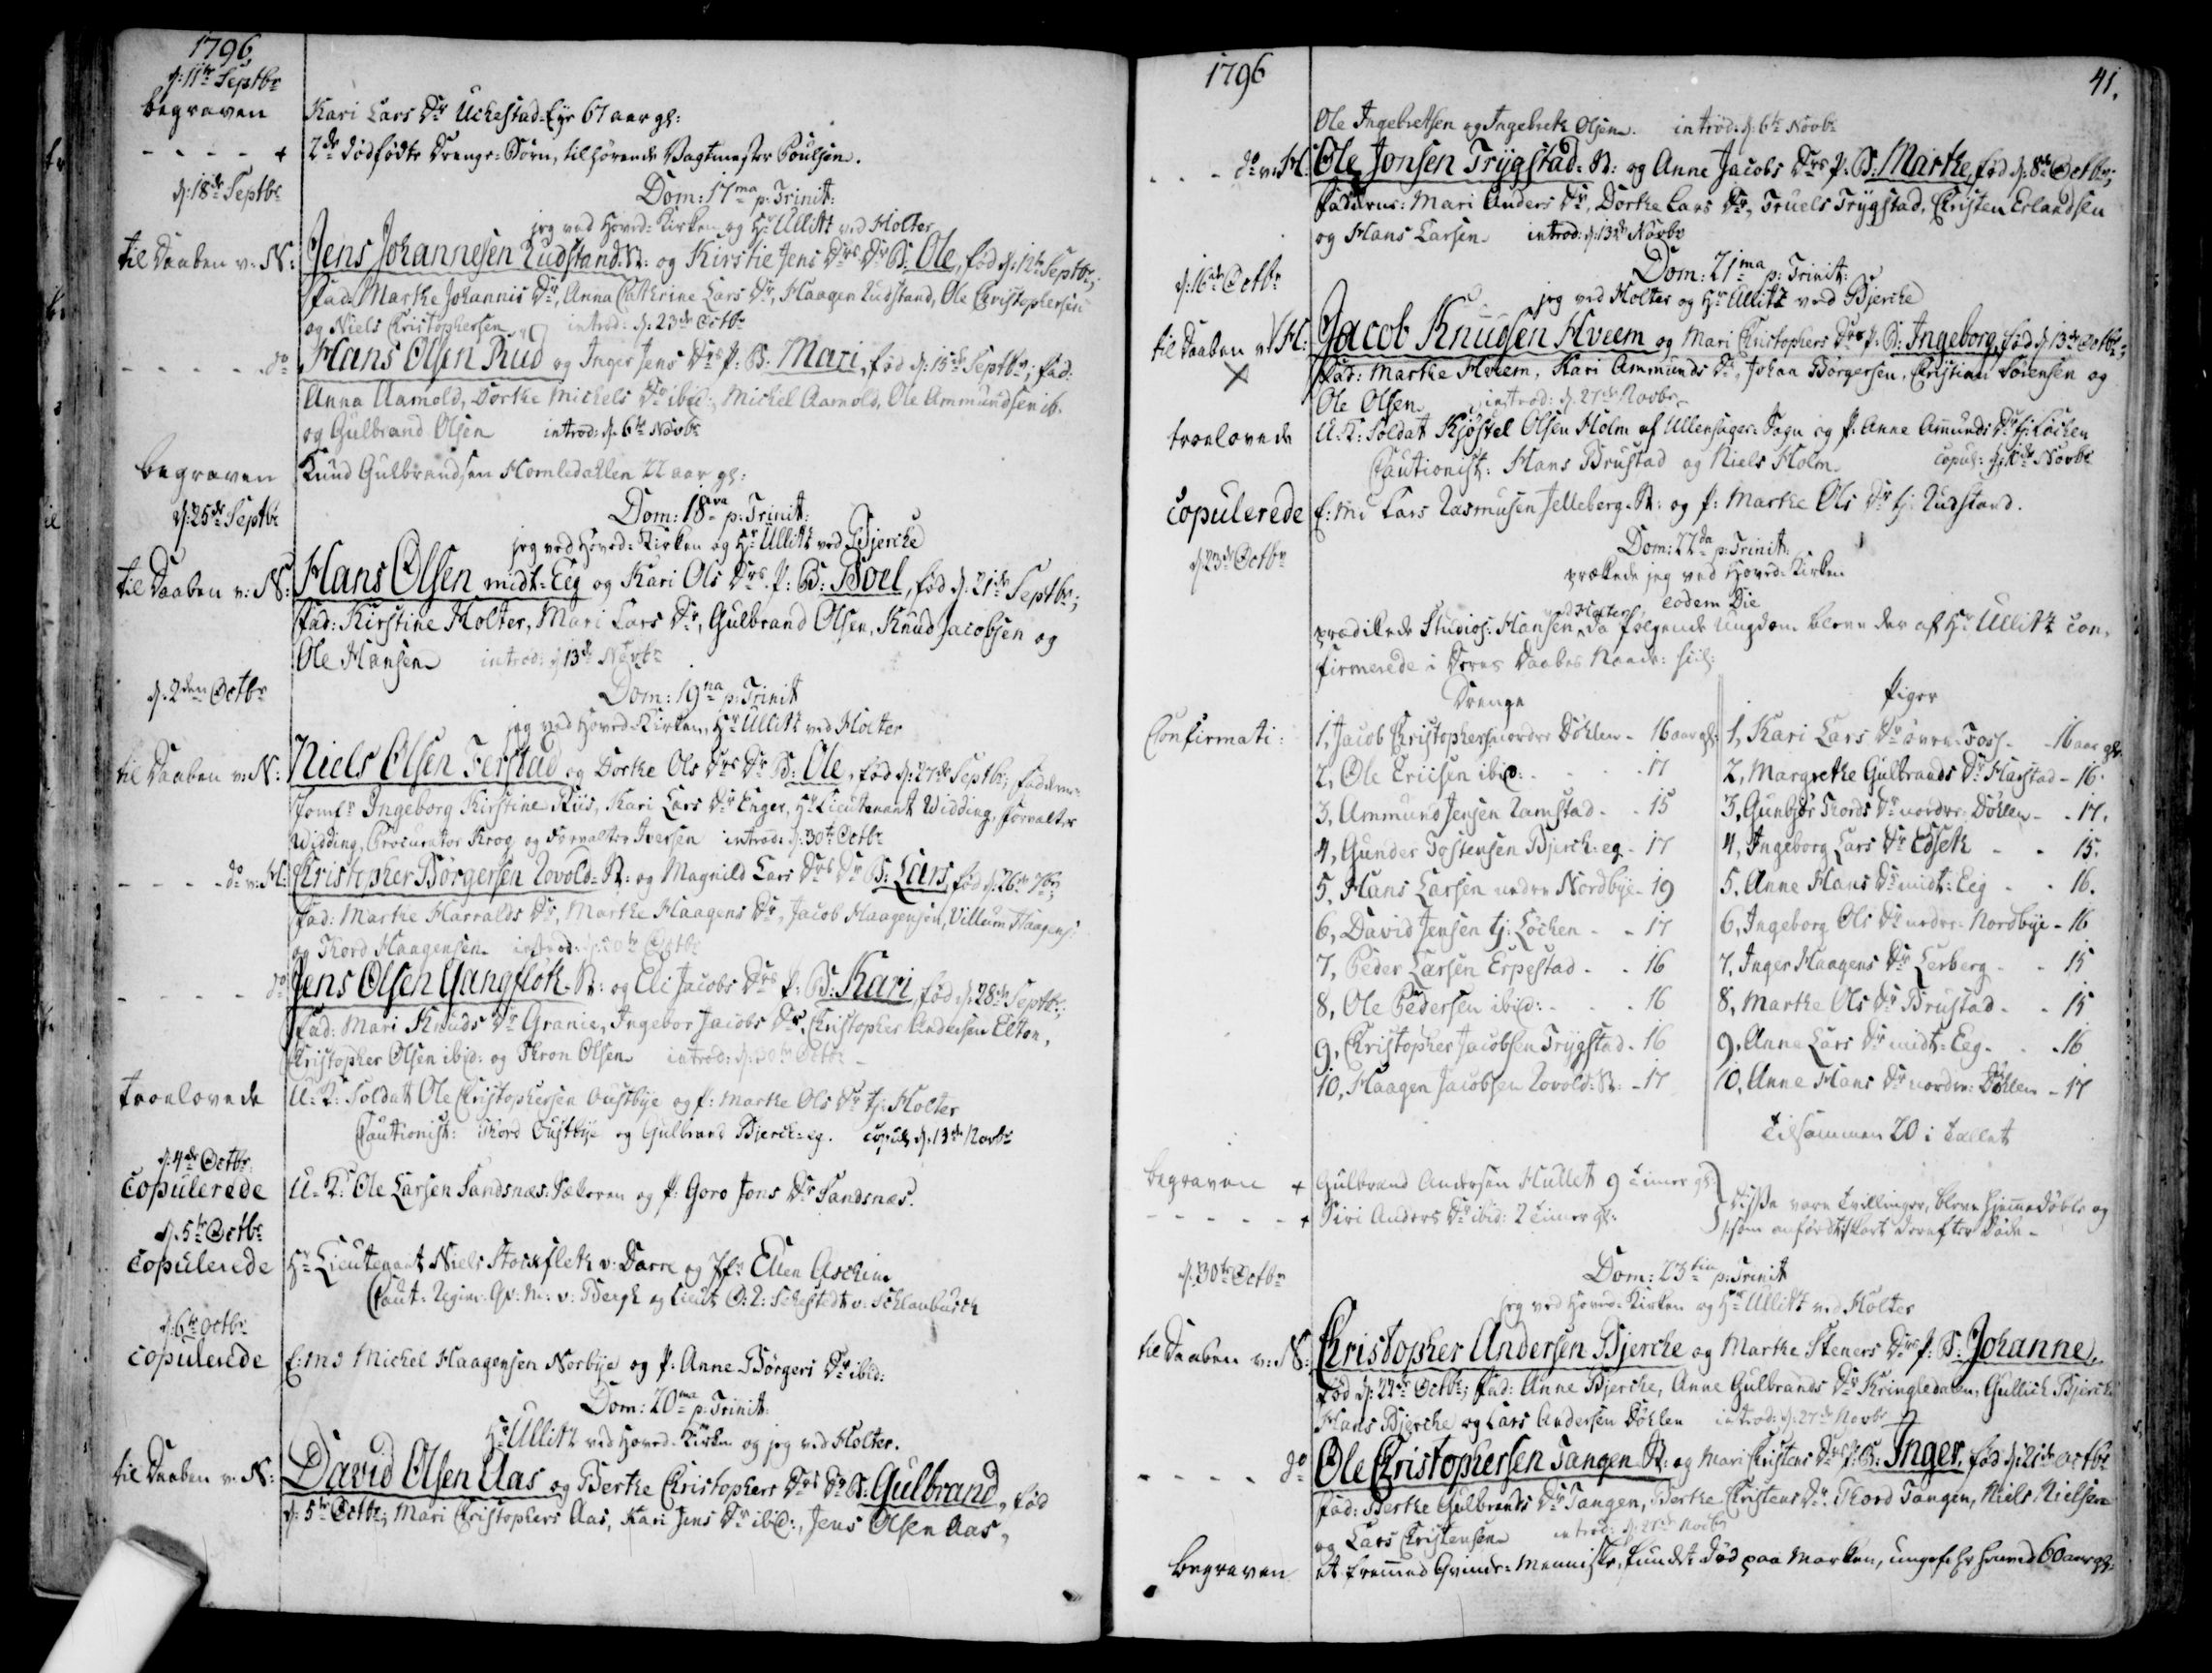 1796
d: 11te Septbr
begraven Kari Lars Dr Uckestad-Eye 67 aar gl:
- - - - + 2de dødfødte Drenge-Børn, tilhørende Vagtmester Poulsen.
d: 18de Septbr Dom: 17ma p: Trinit:
jeg ved Hoved-Kirken og Hr Ullitz ved Holter
til Daaben v: N: Jens Johannesen Rudstand: R: og Kirstie Jens Drs Dr B: Ole, fød d: 12te Septbr;
Fad: Marthe Johannis Dr, Anna Cathrine Lars Dr, Haagen Rudstand, Ole Christophersen
og Niels Christophersen introd: d: 23de Octbr
- - - - do Hans Olsen Rud og Inger Jens Drs P: B: Mari, fød d: 15de Septbr; fad:
Anna Aamold, Dorthe Michels Dr ibid:, Michel Aamold, Ole Ammundsen ib.
og Gulbrand Olsen introd: d. 6te Novbr
begraven Knud Gulbrandsen Hornledahlen 22 aar gl:
d: 25de Septbr Dom: 18ava p: Trinit:
jeg ved Hoved-Kirken og Hr Ullitz ved Bjercke
til Daaben v: N: Hans Olsen midt-Eeg og Kari Ols Drs P: B: Boel, fød d. 21de Septbr;
Fad: Kirstine Holter, Mari Lars Dr, Gulbrand Olsen, Knud Jacobsen og
Ole Hansen introd: d 13de Novbr
d. 2den Octbr Dom: 19na p: Trinit
jeg ved Hoved-Kirken, Hr Ullitz ved Holter
til Daaben v: N: Niels Olsen Ferstad og Dorthe Ols Drs Dr B: Ole, fød d: 27de Septbr; faddere
Jomfr Ingeborg Kirstine Riis, Kari Lars Dr Enger, Hr Lieutenant Widding, Forvalter
Widding, Procurator Krog og Forvalter Iversen introd: d: 30te Octbr
- - - - do v: H: Christopher Børgersen Rovold: R: og Magnild Lars Drs Dr B: Lars, fød d: 26de 7br;
Fad: Marthe Harralds Dr, Marthe Haagens Dr, Jacob Haagensen, Villum Haagens:
og Thord Haagensen introd: d: 30te Octbr
- - - - do Jens Olsen Gangfløt: R: og Eli Jacobs Drs P: B: Kari, fød d: 28de Septbr;
Fad: Mari Knuds Dr Granie, Ingebor Jacobs Dr, Christopher Andersen Elton,
Christopher Olsen ibid: og Thron Olsen introd: d: 30te Octbr
troelovede U: K: Soldat Ole Christophersen Oustbye og P: Marthe Ols Dr tj: Holter
Cautionist: Thord Oustbye og Gulbrand Bjerck-eg. copul: d. 13de Novbr
d: 4de Octbr
copulerede U: K: Ole Larsen Sandsnæs: og P: Goro Jens Dr Sandsnæs.
d. 5te Octbr
copulerede Hr Lieutenant Niels Stockfleth v: Darre og Jfr Ellen Aschim
Caut: Regim: Qv: M: v: Bergh og Lieut. O: R: Sehestedt v: Schlanbusch
d: 6te octbr
copulerede E: M: Michel Haagensen Norbye og P: Anne Børgers Dr ibid:
Dom: 20ma p: Trinit:
Hr Ullitz ved Hoved-Kirken og jeg ved Holter.
til Daaben v: N: David Olsen Aas og Berthe Christophers Drs Dr B: Gulbrand, fød
d: 5te Octbr; Mari Christophers Aas, Kari Jens Dr ibid:, Jens Olsen Aas,
1796 41.
Ole Ingebretsen og Ingebreth Olsen. introd: d: 6te Novbr
- - - do v: H: Ole Jonsen Trygstad: R: og Anne Jacobs Drs P: B: Marthe, fød d: 8de Octbr;
Fadderne: Mari Anders Dr, Dorthe Lars Dr, Truels Trygstad, Christen Erlandsen
og Hans Larsen introd: d: 13de Novbr
d: 16de Octbr Dom: 21ma p: Trinit:
jeg ved Holter og Hr Ullitz ved Bjercke
til Daaben v: H: Jacob Knudsen Hveem og Mari Christophers Drs P: B: Ingeborg, fød d 13de Octbr;
× Fad: Marthe Hveem, Kari Ammunds Dr, Johan Børgersen, Christian Sørensen og
Ole Olsen introd: d. 27de Novbr
troelovede U: K: Soldat Kjøstel Olsen Holm af Ullensager: Sogn og P: Anne Amunds Dr tj: Løcken
Cautionist: Hans Brustad og Niels Holm copul: d: Novbr
copulerede E: M: Lars Rasmusen Jelleberg: R: og P: Marthe Ols Dr tj: Rudstand.
d 23de Octbr Dom: 22da p: Trinit:
prækede jeg ved Hoved-Kirken
eodem Die
prædikede Studios: Hansen ved Holter, da følgende Ungdom bleve der af Hr Ullitz con-
firmerede i Deres Daabes Naade: scil:
Drenge Piger
Confirmati: 1, Jacob Christophersen nordre Døhlen - 16 aar gl: 1, Kari Lars Dr øvre-Foss - 16 aar gl:
2, Ole Ericsen ibid: - 17 2, Margrethe Gulbrands Dr Harstad - 16.
3, Ammund Jensen Ramstad - 15 3, Gunbjør Thords Dr nordre-Døhlen - 17.
4, Gunder Tostensen Bjerck-eg - 17 4, Ingeborg Lars Dr Edseth - 15.
5, Hans Larsen nedre Nordbye - 19 5, Anne Hans Dr midt-Eeg - 16.
6, David Jensen tj: Løcken - 17 6, Ingeborg Ols Dr nedre-Nordbye - 16
7, Peder Larsen Erpestad - 16 7, Inger Haagens Dr Lerberg - 15
8, Ole Pedersen ibid: - 16 8, Marthe Ols Dr Brustad - 15
9, Christopher Jacobsen Trygstad - 16 9, Anne Lars Dr midt-Eeg - 16
10, Haagen Jacobsen Rovold: R: - 17 10, Anne Hans Dr nordre: Døhlen - 17
Tilsammen 20 i Tallet
begraven + Gulbrand Andersen Hullet 9 Timer gl:
- - - - + Siri Anders Dr ibid: 2 Timer gl:
Disse vare Tvillinger, bleve hjemmedøbte og
som anført kort derefter døde -
d: 30te Octbr Dom: 23tia p: Trinit
jeg ved Hoved-Kirken og Hr Ullitz ved Holter
til Daaben v: N: Christopher Andersen Bjercke og Marthe Steners Drs P: B: Johanne,
fød d: 22de Octbr; fad: Anne Bjercke, Anne Gulbrands Dr Kringledalen, Gullich Bjercke
Hans Bjercke og Lars Andersen Døhlen introd: d: 27de Novbr
- - - - do Ole Christophersen Tangen R: og Mari Christens Drs P: B: Inger, fød d: 21de octbr
Fad: Berthe Gulbrands Dr Tangen, Berthe Christens Dr, Thord Tangen, Niels Nielsen
og Lars Christensen introd: d: 27de Novbr
begraven et fremmed Qvinde-Menniske, fundet død paa Marken, ungefehr henved 60 aar gl: